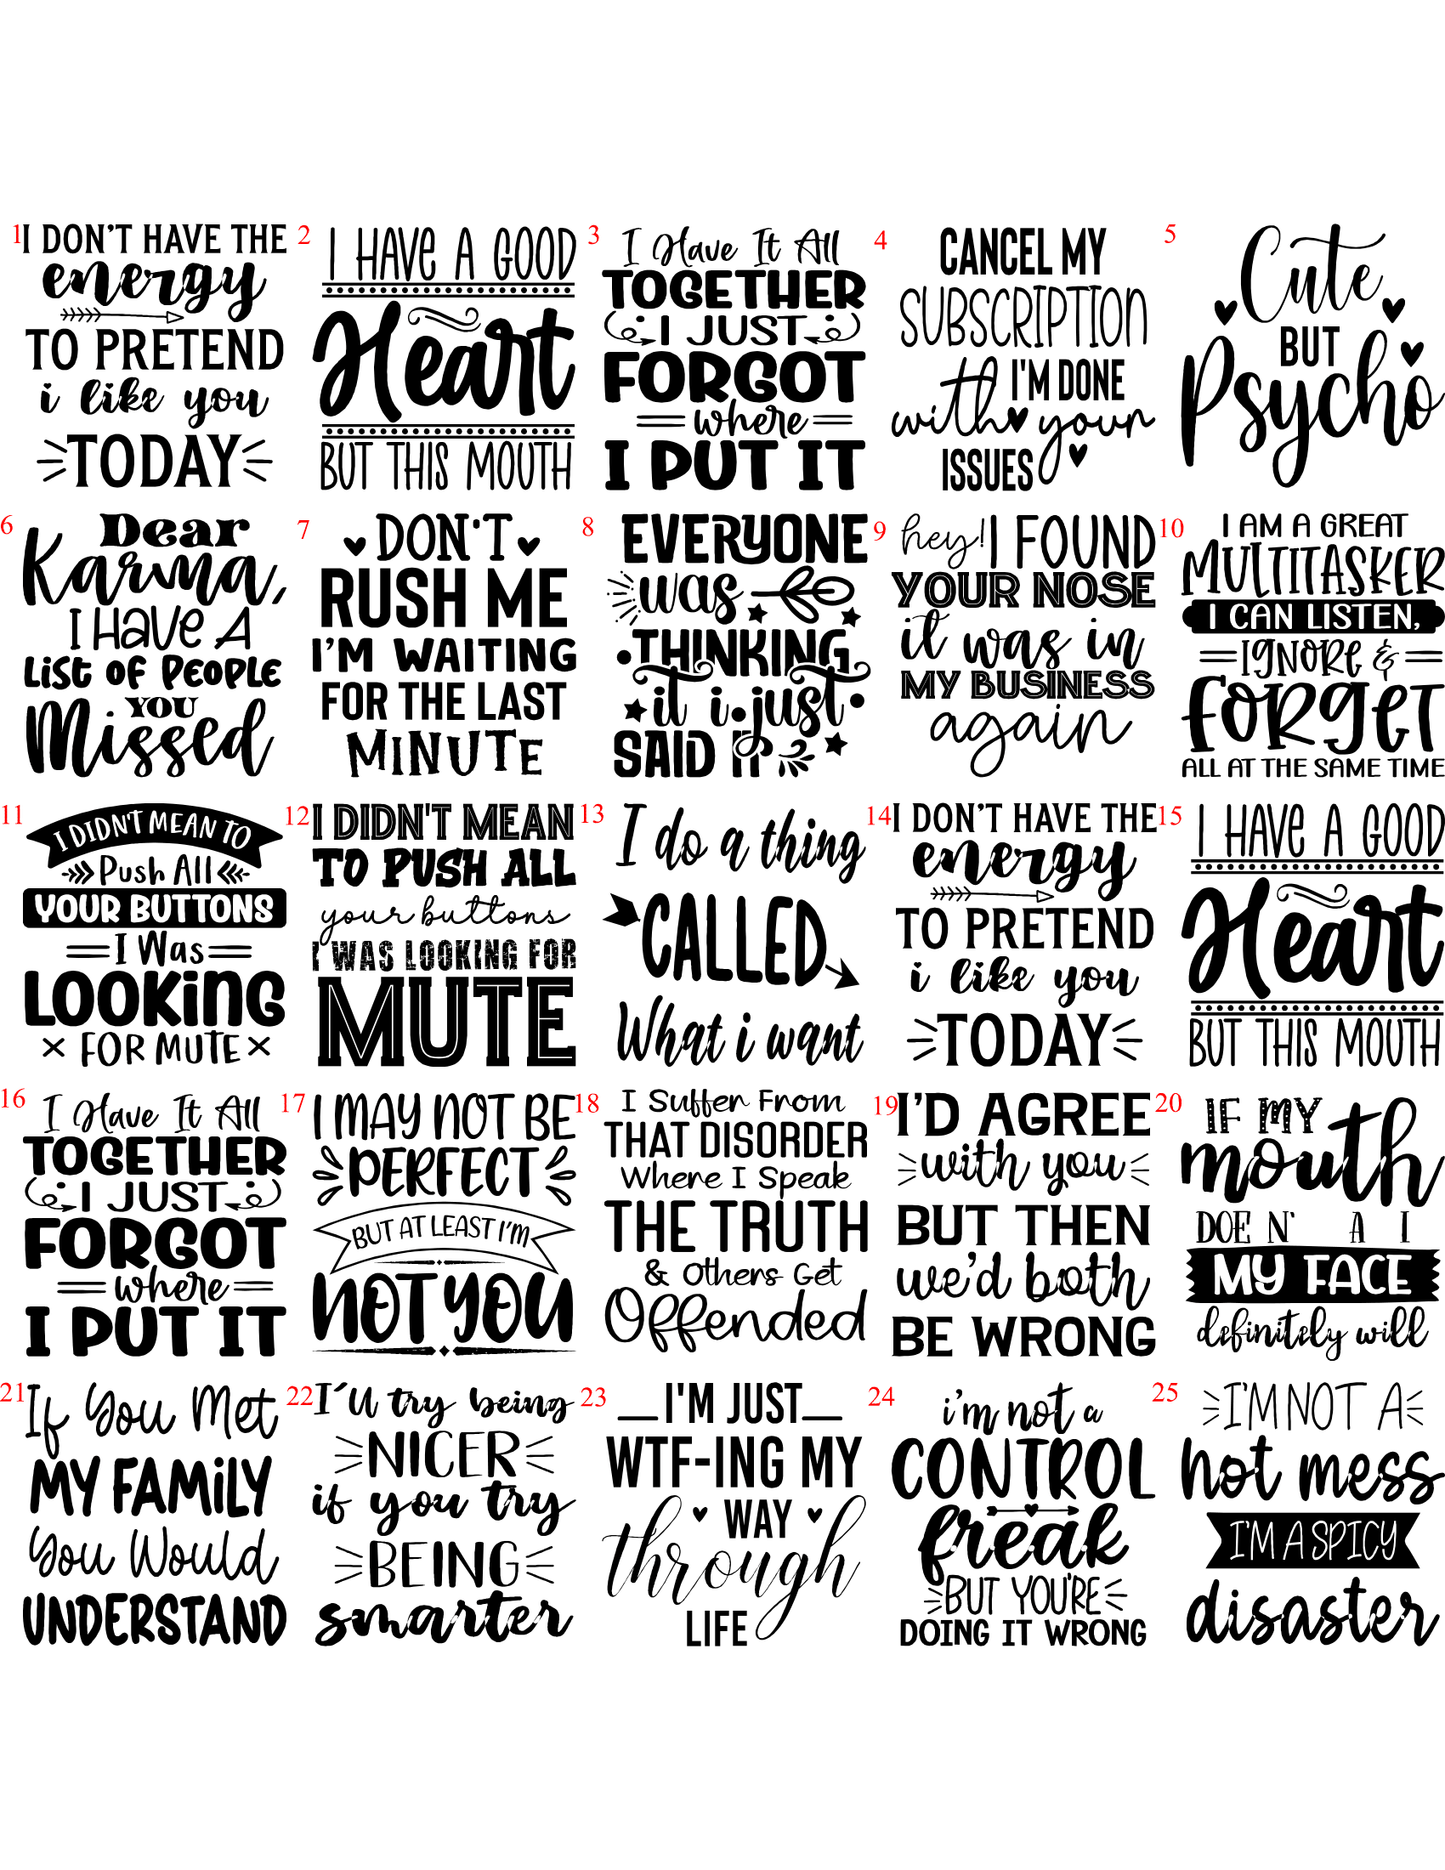 1
I DON'T HAVE THE
energy
TO PRETEND
i like you
TODAY
2
I HAVE A GOOD
Heart
BUT THIS MOUTH
3
I Have It All
TOGETHER
I JUST
FORGOT
where
I PUT IT
4
CANCEL MY
SUBSCRIPTION
I'M DONE
with your
ISSUES
5
Cute
BUT
Psycho
6
Dear
Karma,
I HAVE A
LIST OF PEOPLE
YOU
Missed
7
DON'T
RUSH ME
I'M WAITING
FOR THE LAST
MINUTE
8
EVERYONE
was
THINKING
it i just
SAID IT
9
hey! I FOUND
YOUR NOSE
it was in
MY BUSINESS
again
10
I AM A GREAT
MULTITASKER
I CAN LISTEN,
IGNORE &
FORGET
ALL AT THE SAME TIME
11
I DIDN'T MEAN TO
Push All
YOUR BUTTONS
I Was
LOOKING
FOR MUTE
12
I DIDN'T MEAN
TO PUSH ALL
your buttons
I WAS LOOKING FOR
MUTE
13
I do a thing
CALLED
What i want
14
I DON'T HAVE THE
energy
TO PRETEND
i like you
TODAY
15
I HAVE A GOOD
Heart
BUT THIS MOUTH
16
I Have It All
TOGETHER
I JUST
FORGOT
where
I PUT IT
17
I MAY NOT BE
PERFECT
BUT AT LEAST I'M
NOT YOU
18
I Suffer From
THAT DISORDER
Where I Speak
THE TRUTH
& Others Get
Offended
19
I'D AGREE
with you
BUT THEN
we'd both
BE WRONG
20
IF MY
mouth
DOE N' A I
MY FACE
definitely will
21
If You Met
MY FAMILY
You Would
UNDERSTAND
22
I'll try being
NICER
if you try
BEING
smarter
23
I'M JUST
WTF-ING MY
WAY
through
LIFE
24
i'm not a
CONTROL
freak
BUT YOU'RE
DOING IT WRONG
25
I'M NOT A
hot mess
I'M A SPICY
disaster